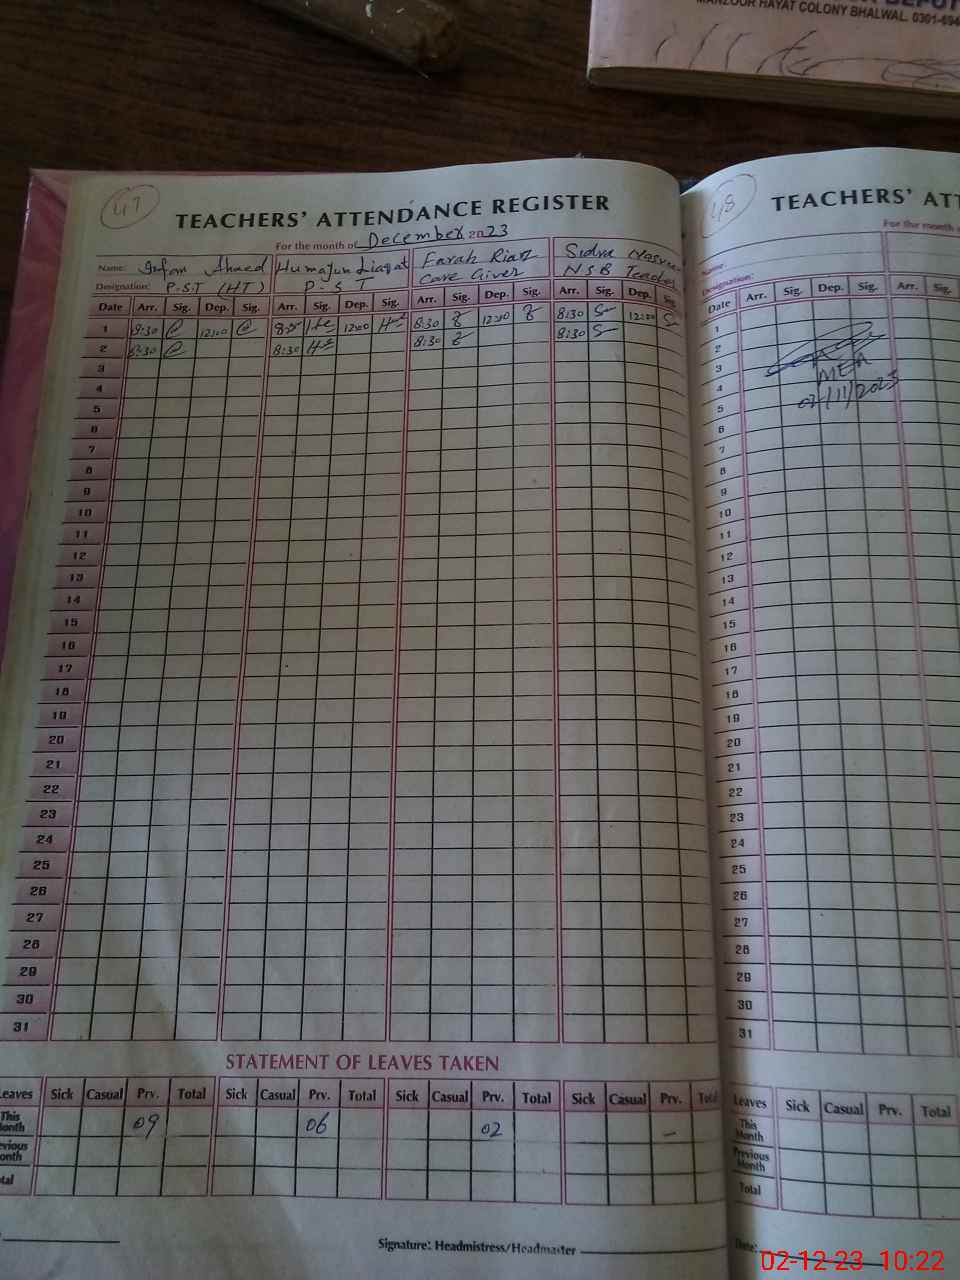 MANZOOR HAYAT COLONY BHALWAL. 0301-694
47
TEACHERS' ATTENDANCE REGISTER
For the month of December 2023
Name: Irfan Ahmed Humayun Liaqat Farah Riaz Sidra
Designation: P.S.T (HT) P.S.T Care Giver NSB Teacher
Date Arr. Sig. Dep. Sig. Arr. Sig. Dep. Sig. Arr. Sig. Dep. Sig. Arr. Sig. Dep. Sig.
1 8:30 12:00 12:00 8:30 12:00 8:30 12:00
2 8:30 8:30 8:30 8:30
3
4
5
6
7
8
9
10
11
12
13
14
15
16
17
18
19
20
21
22
23
24
25
26
27
28
29
30
31
STATEMENT OF LEAVES TAKEN
Leaves Sick Casual Prv. Total Sick Casual Prv. Total Sick Casual Prv. Total Sick Casual Prv. Total
This Month 09 06 02 –
Previous Month
Total
Signature: Headmistress/Headmaster
48
TEACHERS' ATT
For the month o
Name:
Designation:
Date Arr. Sig. Dep. Sig. Arr. Sig.
1
2
3
4
5
6
7
8
9
10
11
12
13
14
15
16
17
18
19
20
21
22
23
24
25
26
27
28
29
30
31
MEA
02/11/2023
Leaves Sick Casual Prv. Total
This Month
Previous Month
Total
Date:
02-12-23 10:22